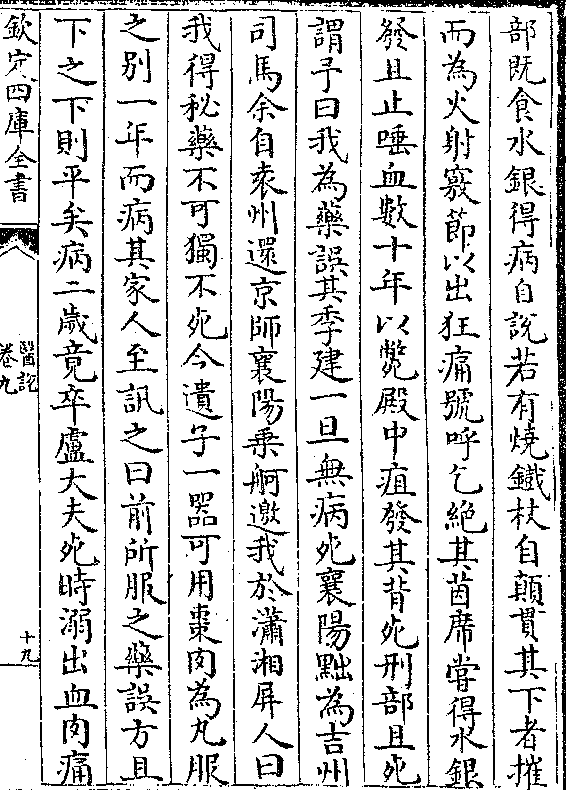 部既食水銀得病自說若有燒鐵杖自顛貫其下者摧
而為火射竅節以出狂痛號呼乞絕其茵席嘗得水銀
發且止唾血數十年以斃殿中疽發其背死刑部且死
謂予曰我為藥誤其季建一旦無病死襄陽黜為吉州
司馬余自袁州還京師襄陽乗舸邀我於瀟湘屏人曰
我得秘藥不可獨不死今遺子一器可用棗肉為丸服
之别一年而病其家人至訊之曰前所服之藥誤方且
下之下則平矣病二歲竟卒盧大夫死時溺出血肉痛
欽定四庫全書
醫說
卷九
十九